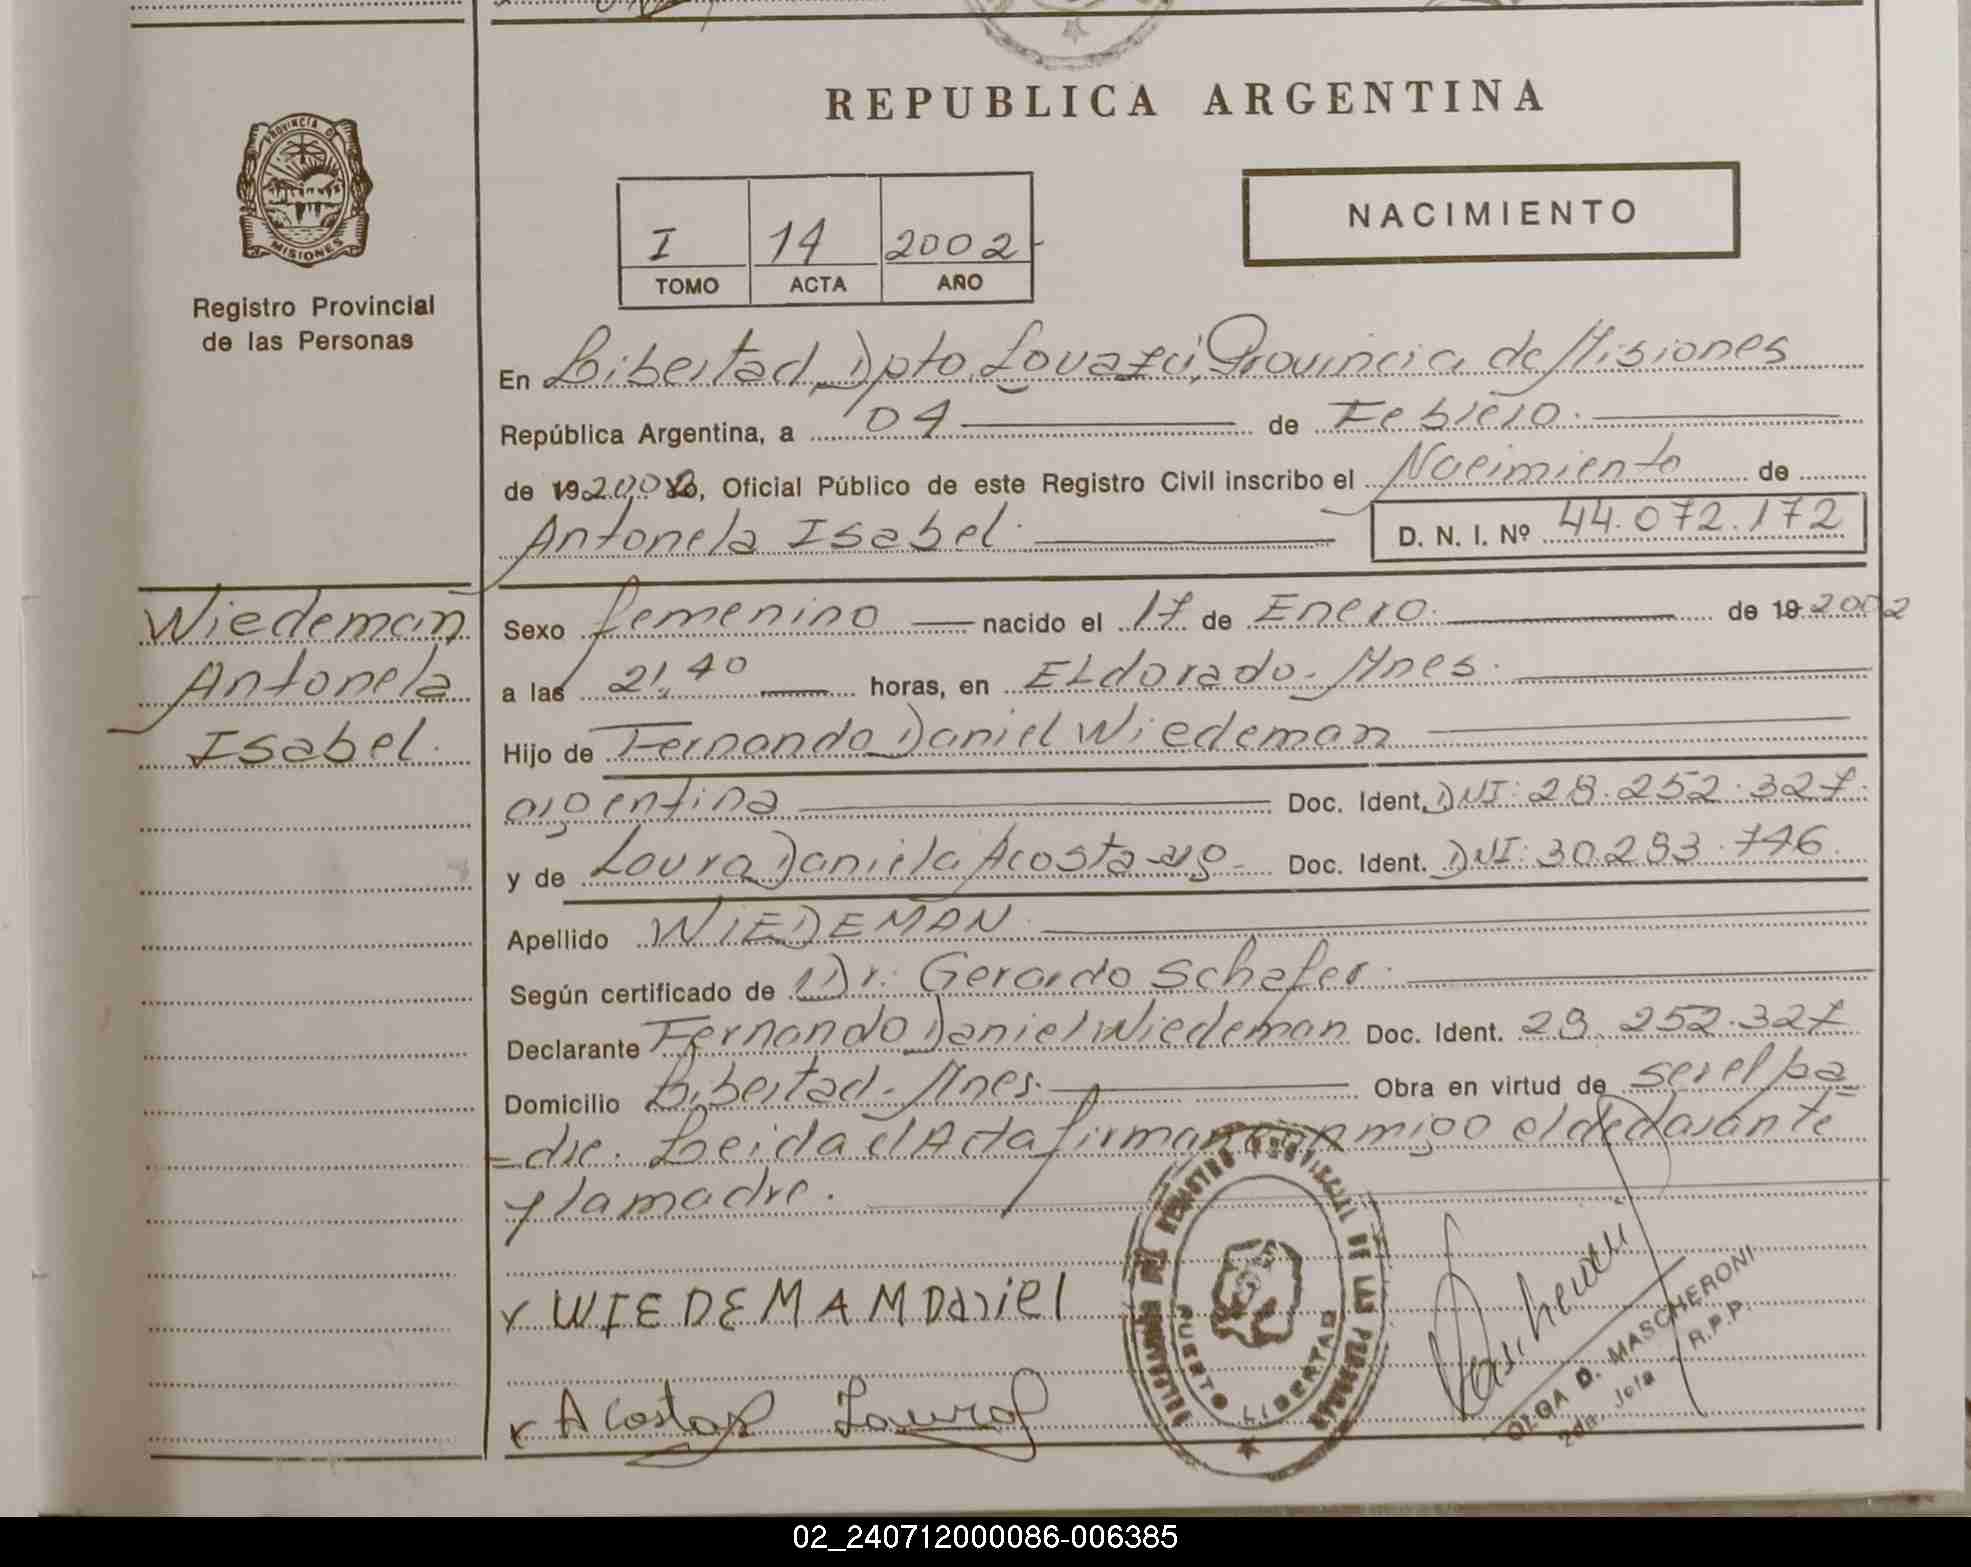 REPUBLICA ARGENTINA
PROVINCIA DE MISIONES
Registro Provincial
de las Personas
I 14 2002
TOMO ACTA AÑO
NACIMIENTO
En Libertad, Dpto. Iguazú, Provincia de Misiones
República Argentina, a 04 de Febrero.
de 19 2002, Oficial Público de este Registro Civil inscribo el Nacimiento de
Antonela Isabel. D. N. I. Nº 44.072.172
Wiedeman
Antonela
Isabel.
Sexo femenino nacido el 17 de Enero. de 19 2002
a las 21,40 horas, en Eldorado - Mnes.
Hijo de Fernando Daniel Wiedeman
argentina Doc. Ident. DNI: 28.252.327.
y de Laura Daniela Acosta arg - Doc. Ident. DNI: 30.293.746.
Apellido WIEDEMAN.
Según certificado de Dr. Gerardo Schafer.
Declarante Fernando Daniel Wiedeman Doc. Ident. 28.252.327
Domicilio Libertad - Mnes. Obra en virtud de ser el pa=
=dre. Leida el Acta firman conmigo el declarante
y la madre.
x WIEDEMAM Daniel
x Acosta Laura
REGISTRO PROVINCIAL DE LAS PERSONAS
PUERTO LIBERTAD
OLGA D. MASCHERONI
2da. Jefa R.P.P.
02_240712000086-006385